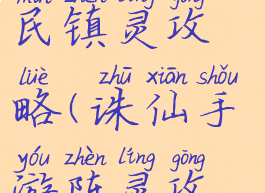 mín zhèn líng gōng
民镇灵攻
lüè zhū xiān shǒu
略(诛仙手
yóu zhèn líng gōng
游阵灵攻